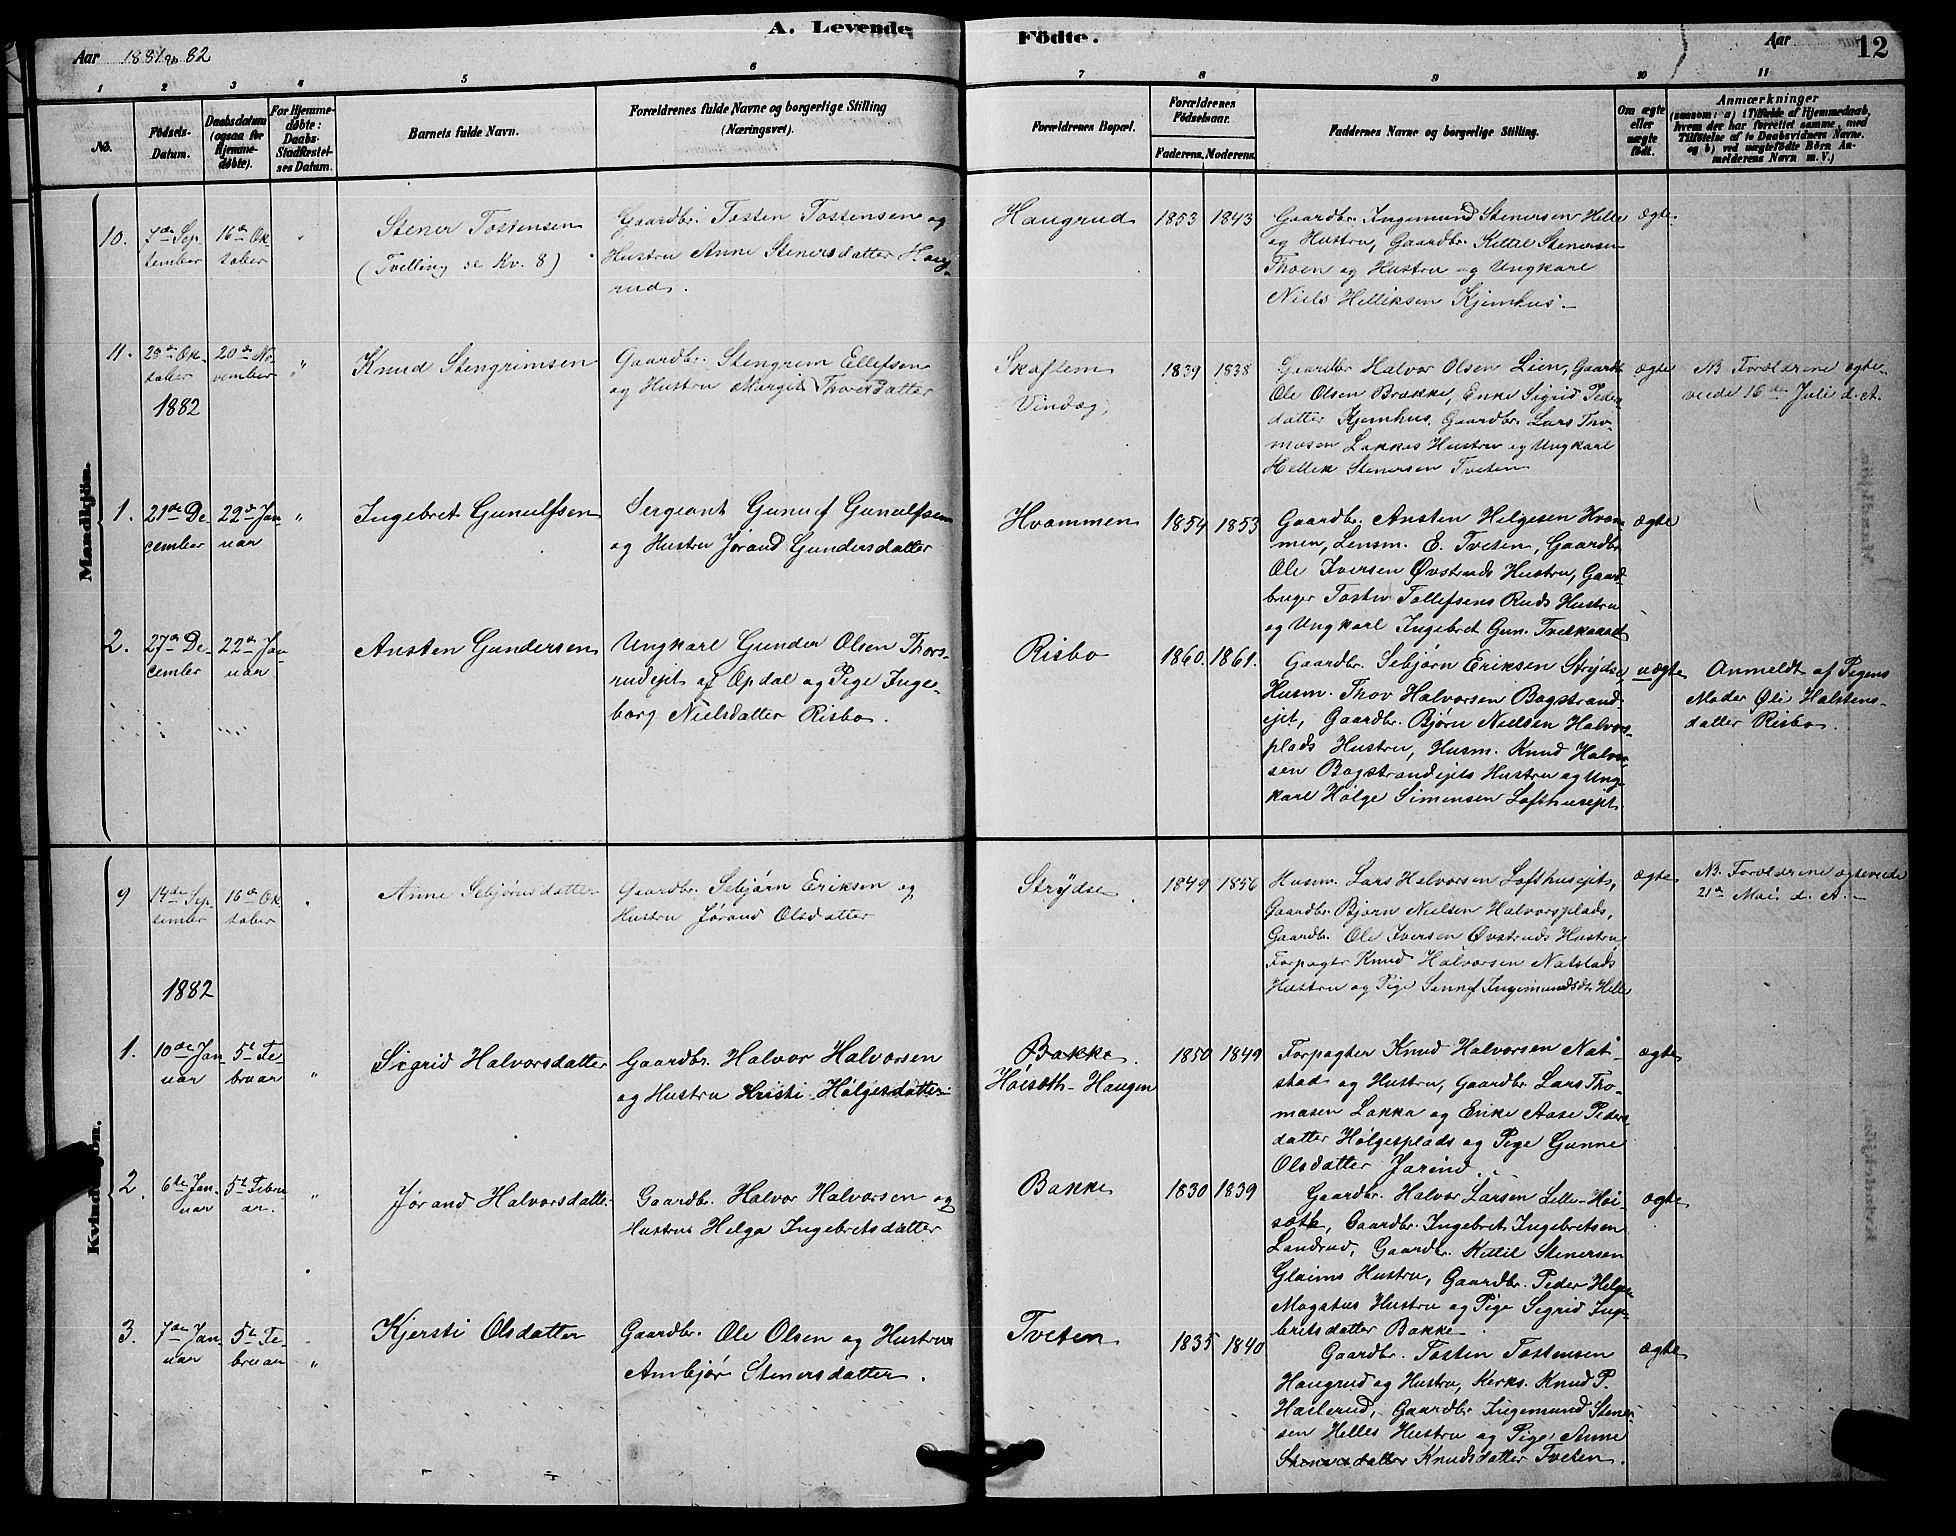 A. Levende Födte.
Aar 1881 og 82
Aar
12
1 2 3 4 5 6 7 8 9 10 11
No.
Födsels-
Datum.
Daabsdatum
(ogsaa for
Hjemme-
døbte).
For Hjemme-
døbte:
Daabs-
Stadfæstel-
ses Datum.
Barnets fulde Navn.
Forældrenes fulde Navne og borgerlige Stilling
(Næringsvei).
Forældrenes Bopæl.
Forældrenes
Födselsaar.
Faderens. Moderens.
Faddernes Navne og borgerlige Stilling.
Om ægte
eller
uægte
født.
Anmærkninger
(saasom: a) i Tilfælde af Hjemmedaab,
hvem der har forrettet samme, med
Tilföielse af to Daabsvidners Navne.
og b) ved uægtefödte Börn An-
melderens Navn m. V.)
Mandkjön.
10.
7de Sep
tember
16de Ok
tober
"
Stener Tostensen
(Tvelling se Kv. 8)
Gaardbr. Tosten Tostensen og
Hustru Anne Stenersdatter Haug-
rud.
Haugrud
1853 1843
Gaardbr. Ingemund Stenersen Helle
og Hustru, Gaardbr. Kittil Stenersen
Thoen og Hustru og Ungkarl
Niels Helliksen Kjemhus.
ægte
11.
28de Ok-
tober
20de No-
vember
"
Knud Stengrimsen
Gaardbr. Stengrim Ellefsen
og Hustru Margit Thorsdatter
Skaflem
Vindeg,
1839 1838
Gaardbr Halvor Olsen Lien, Gaardb.
Ole Olsen Brække, Enke Sigrid Peders-
datter Kjemhus, Gaardbr. Lars Tho-
masen Lakkes Hustru og Ungkarl
Hellik Stenersen Tveten
ægte
NB Forældrene ægte-
viede 16de Juli d. A.
1882
1.
21de De
cember
22de Jan
uar
"
Ingebret Gunulfsen
Sergeant Gunulf Gunulfsen
og Hustru Jørand Gundersdatter
Hvammen
1854 1853
Gaardbr. Ansten Helgesen Hvam-
men, Lensm. E. Tveten, Gaardbr
Ole Iversen Øvstruds Hustru, Gaard-
bruger Tosten Tollefsens Ruds Hustru
og Ungkarl Ingebret Gun. Tvetgaard
ægte
2.
27de De-
cember
22de Jan-
uar
Ansten Gundersen
Ungkarl Gunder Olsen Thors-
rudejet af Opdal og Pige Inge-
borg Nielsdatter Risbo.
Risbo
1860. 1861.
Gaardbr. Sebjørn Eriksen Strydse,
Husm. Thov Halvorsen Bagstrand-
ejet, Gaardbr. Bjørn Nielsen Halvors-
plads Hustru, Husm. Knud Halvor-
sen Bagstrandejets Hustru og Ung-
karl Hølge Simensen Lofthusejet.
uægte
Anmeldt af Pigens
Moder Øli Halstens-
datter Risbo.
Kvindekjön.
9
14de Sep-
tember
16de Ok
tober
"
Anne Sebjørnsdatter
Gaardbr. Sebjørn Eriksen og
Hustru Jørand Olsdatter
Strydse
1849 1856
Husm. Lars Halvorsen Lofthusejets,
Gaardbr. Bjørn Nielsen Halvorsplads,
Gaardbr. Ole Iversen Øvstruds Hustru,
Forpagtr Knud Halvorsen Natstads
Hustru og Pige Sannef Ingemundsdtr Helle
ægte
NB. Forældrene ægteviede
21de Mai d. A.
1882
1.
10de Jan
uar
5te Fe
bruar
"
Sigrid Halvorsdatter
Gaardbr. Halvor Halvorsen
og Hustru Kristi Hølgesdatter
Bakke.
Høisæth-Haugen
1850 1849
Forpagter Knud Halvorsen Nat-
stad og Hustru, Gaardbr. Lars Tho-
masen Lakka og Enke Aase Peders-
datter Hølgesplads og Pige Gunne
Olsdatter Jarind.
ægte
2.
6te Jan-
uar
5te Febru-
ar.
"
Jørand Halvorsdatter
Gaardbr. Halvor Halvorsen og
Hustru Helga Ingebretsdatter
Bakke
1830 1839
Gaardbr. Halvor Larsen Lille-Høi-
sæth, Gaardbr. Ingebret Ingebretsen
Landrud, Gaardbr. Kittil Stenersen
Glaims Hustru, Gaardbr. Peder Helges.
Mogatus Hustru og Pige Sigrid Inge-
britsdatter Bakke.
ægte
3.
7de Jan-
uar
5te Fe-
bruar
"
Kjersti Olsdatter
Gaardbr. Ole Olsen og Hustru
Ambjør Stenersdatter.
Tveten
1835 1840
Gaardbr. Tosten Tostensen
Haugrud og Hustru, Kerks. Knud P.
Haslerud, Gaardbr Ingemund Stener-
sen Helles Hustru og Pige Anne
Stenersdatter Knudsdatter Tveten.
ægte